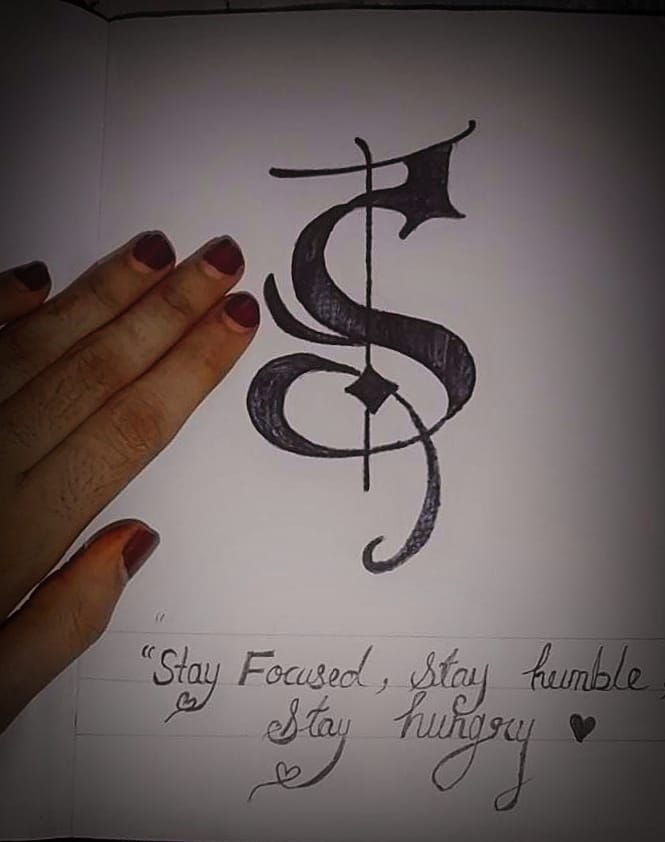 S
"Stay Focused, Stay humble
Stay hungry ♥